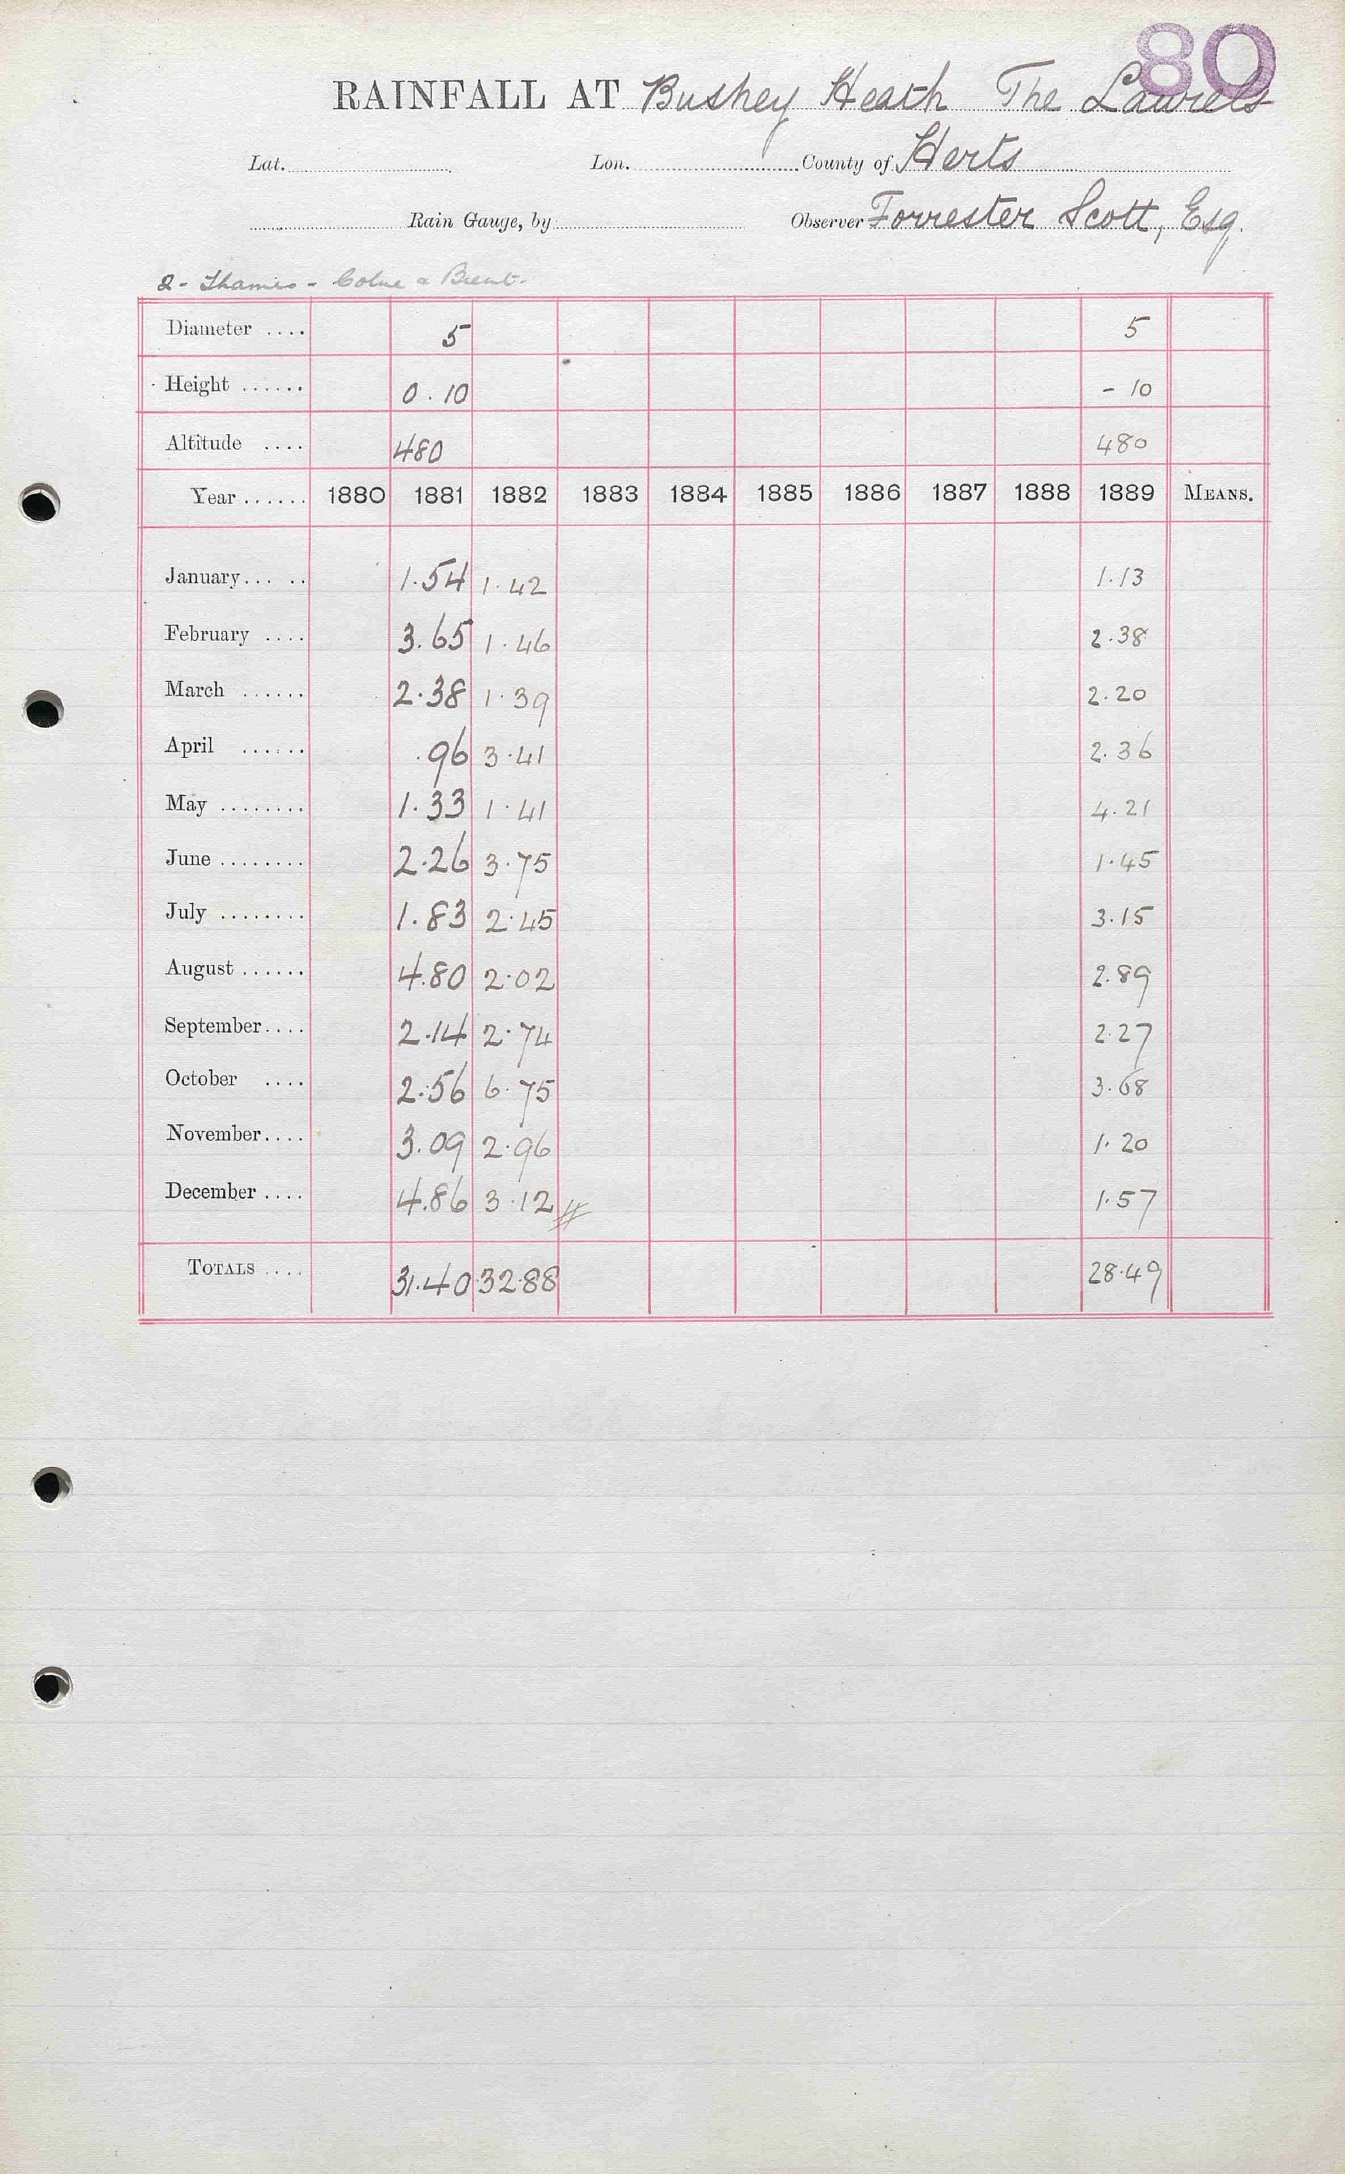 80
RAINFALL AT Bushey Heath The Laurels
Lat. Lon. County of Herts
Rain Gauge, by Observer Forrester Scott, Esq.
2 - Thames - Colne & Brent.
Diameter .... 5 5
Height ...... 0.10 - 10
Altitude .... 480 480
Year ...... 1880 1881 1882 1883 1884 1885 1886 1887 1888 1889 MEANS.
January... .. 1.54 1.42 1.13
February .... 3.65 1.46 2.38
March ...... 2.38 1.39 2.20
April ...... .96 3.41 2.36
May ........ 1.33 1.41 4.21
June ........ 2.26 3.75 1.45
July ........ 1.83 2.45 3.15
August ...... 4.80 2.02 2.89
September.... 2.14 2.74 2.27
October .... 2.56 6.75 3.68
November.... 3.09 2.96 1.20
December .... 4.86 3.12 1.57
TOTALS .... 31.40 32.88 28.49